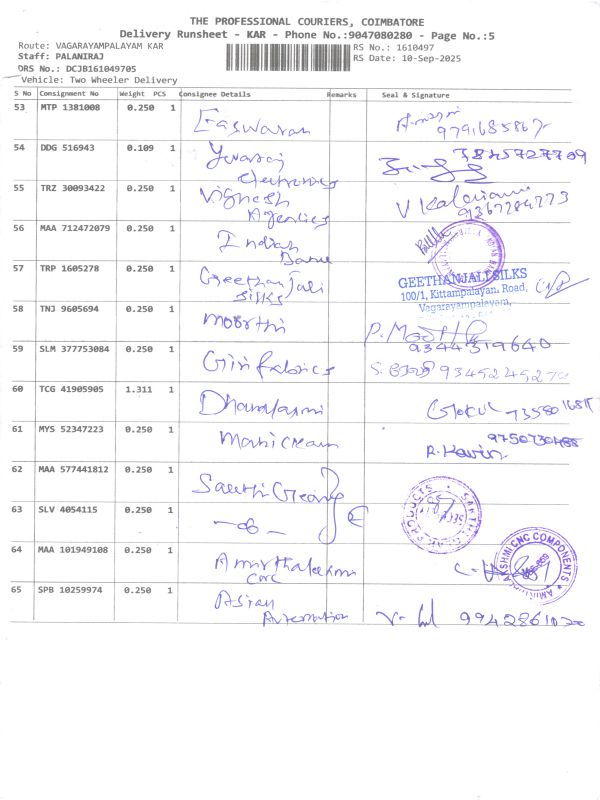 THE PROFESSIONAL COURIERS, COIMBATORE
Delivery Runsheet - KAR - Phone No.:9047080280 - Page No.:5
Route: VAGARAYAMPALAYAM KAR
RS No.: 1610497
Staff: PALANIRAJ
RS Date: 10-Sep-2025
DRS No.: DCJB161049705
Vehicle: Two Wheeler Delivery
S No Consignment No Weight PCS Consignee Details Remarks Seal & Signature
53 MTP 1381008 0.250 1 Easwaran
9791685867
54 DDG 516943 0.109 1 Yuvaraj
Electronics
55 TRZ 30093422 0.250 1 Vignesh
Agencies
V Kalaivani
9367784773
56 MAA 712472079 0.250 1 Indian
Bank
57 TRP 1605278 0.250 1 Geethanjali
silks
GEETHANJALI SILKS
100/1, Kittampalayan. Road,
Vagarayampalayam,
58 TNJ 9605694 0.250 1 Moorthi
9344319640
59 SLM 377753084 0.250 1 Giri fabrics
60 TCG 41905905 1.311 1 Dhanalaxmi
Gokul
61 MYS 52347223 0.250 1 Manickam
9750730488
R. Kavin
62 MAA 577441812 0.250 1 Sakthi Gears
63 SLV 4054115 0.250 1
64 MAA 101949108 0.250 1 Amirthalakshmi
CNC
CNC COMPONENTS
65 SPB 10259974 0.250 1 Asian
Automation